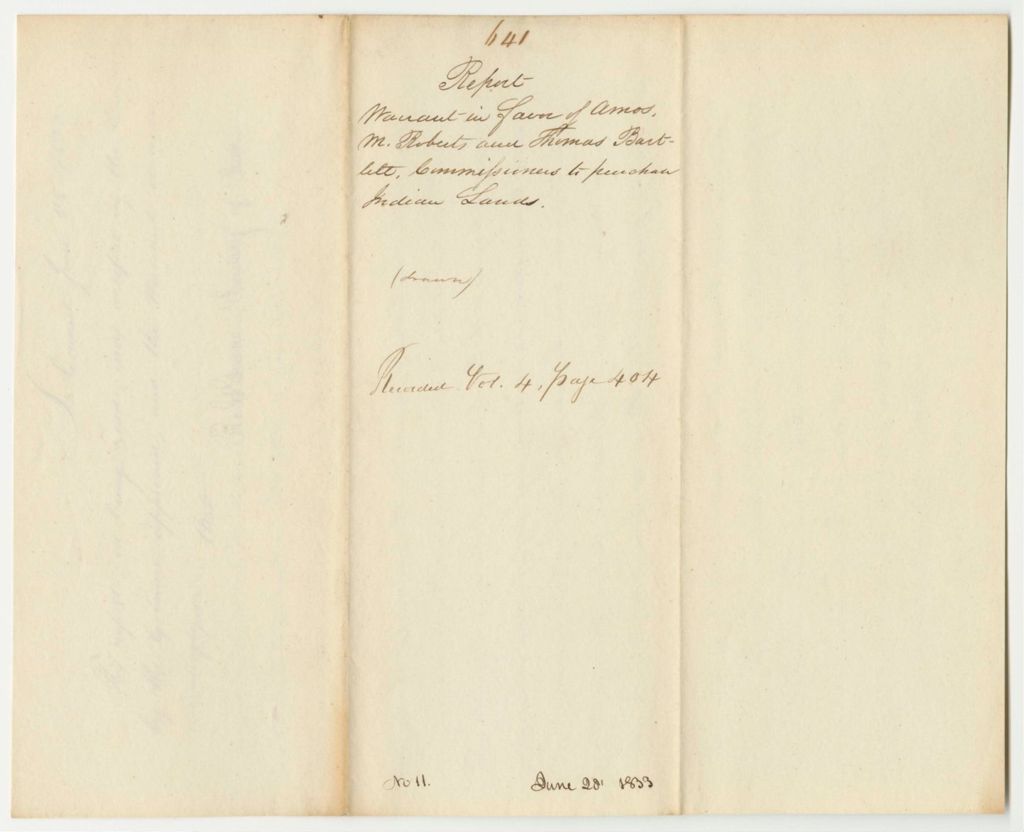 641
Report
Warrant in favor of Amos.
M. Roberts and Thomas Bart-
lett, Commissioners to purchase
Indian Lands.
(drawn)
Recorded Vol. 4, page 404
No 11. June 20 1833